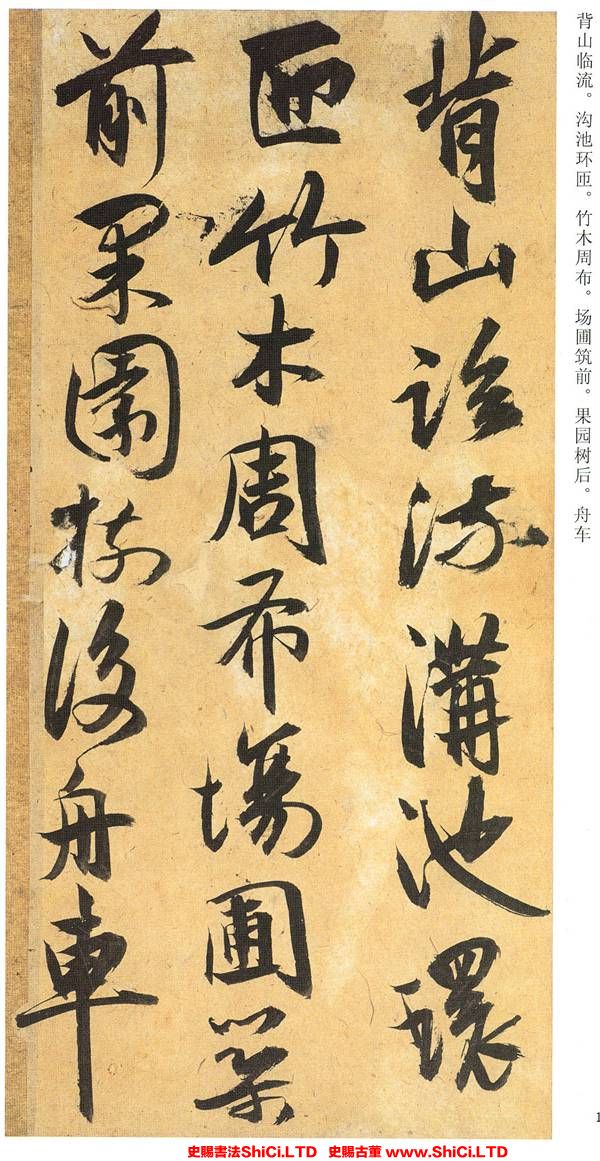 背山临流。沟池环匝。竹木周布。场圃筑前。果园树后。舟车
背山臨流溝池環
匝竹木周布場圃築
前果園樹後舟車
1
史賜書法ShiCi.LTD 史賜古董 www.ShiCi.LTD